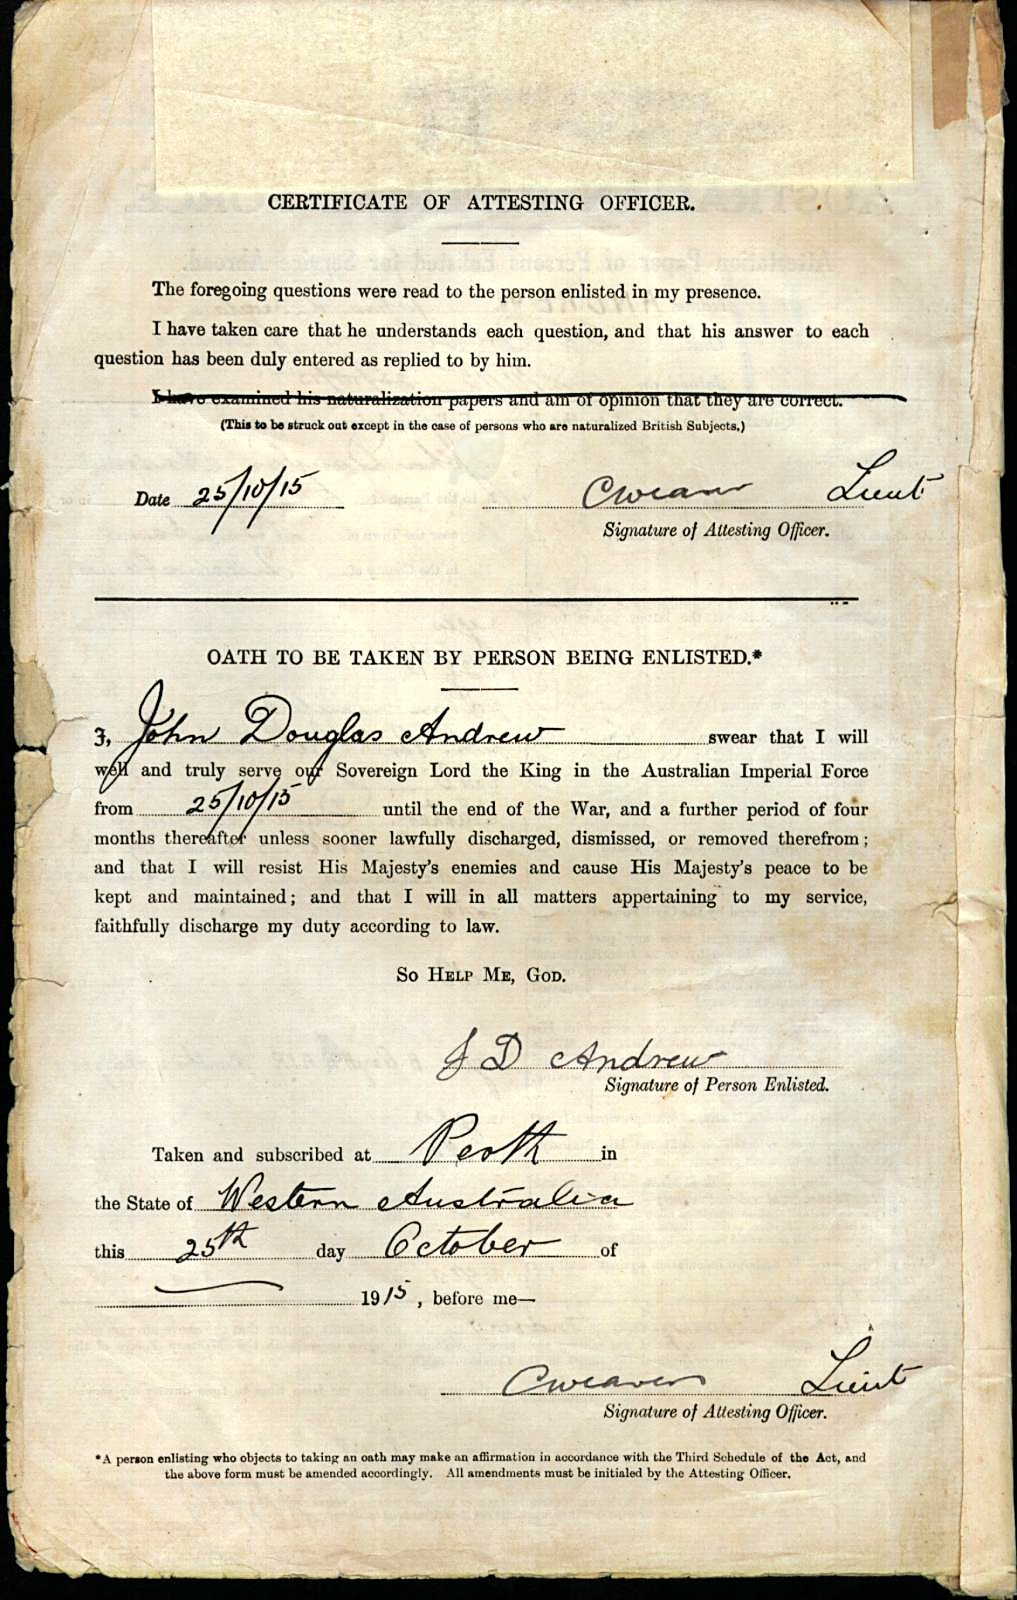 CERTIFICATE OF ATTESTING OFFICER.
The foregoing questions were read to the person enlisted in my presence.
I have taken care that he understands each question, and that his answer to each
question has been duly entered as replied to by him.
I have examined his naturalization papers and am of opinion that they are correct.
(This to be struck out except in the case of persons who are naturalized British Subjects.)
Date 25/10/15 CWeaver Lieut
Signature of Attesting Officer.
OATH TO BE TAKEN BY PERSON BEING ENLISTED.*
I, John Douglas Andrew swear that I will
well and truly serve our Sovereign Lord the King in the Australian Imperial Force
from 25/10/15 until the end of the War, and a further period of four
months thereafter unless sooner lawfully discharged, dismissed, or removed therefrom;
and that I will resist His Majesty's enemies and cause His Majesty's peace to be
kept and maintained; and that I will in all matters appertaining to my service,
faithfully discharge my duty according to law.
SO HELP ME, GOD.
J D Andrew
Signature of Person Enlisted.
Taken and subscribed at Perth in
the State of Western Australia
this 25th day October of
1915, before me—
CWeaver Lieut
Signature of Attesting Officer.
*A person enlisting who objects to taking an oath may make an affirmation in accordance with the Third Schedule of the Act, and
the above form must be amended accordingly. All amendments must be initialed by the Attesting Officer.